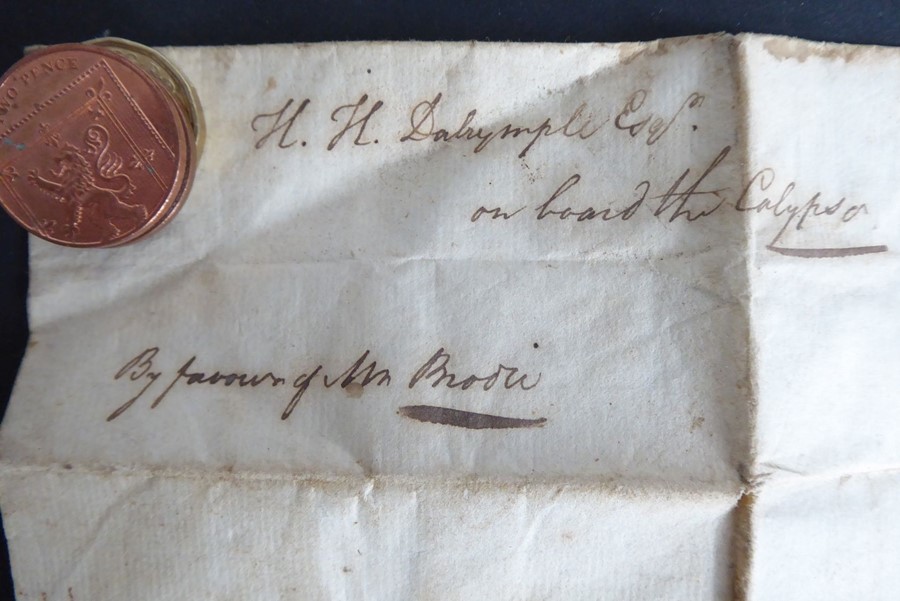 TWO PENCE
H. H. Dalrymple Esqr.
on board the Calypso
By favour of Mr Brodie